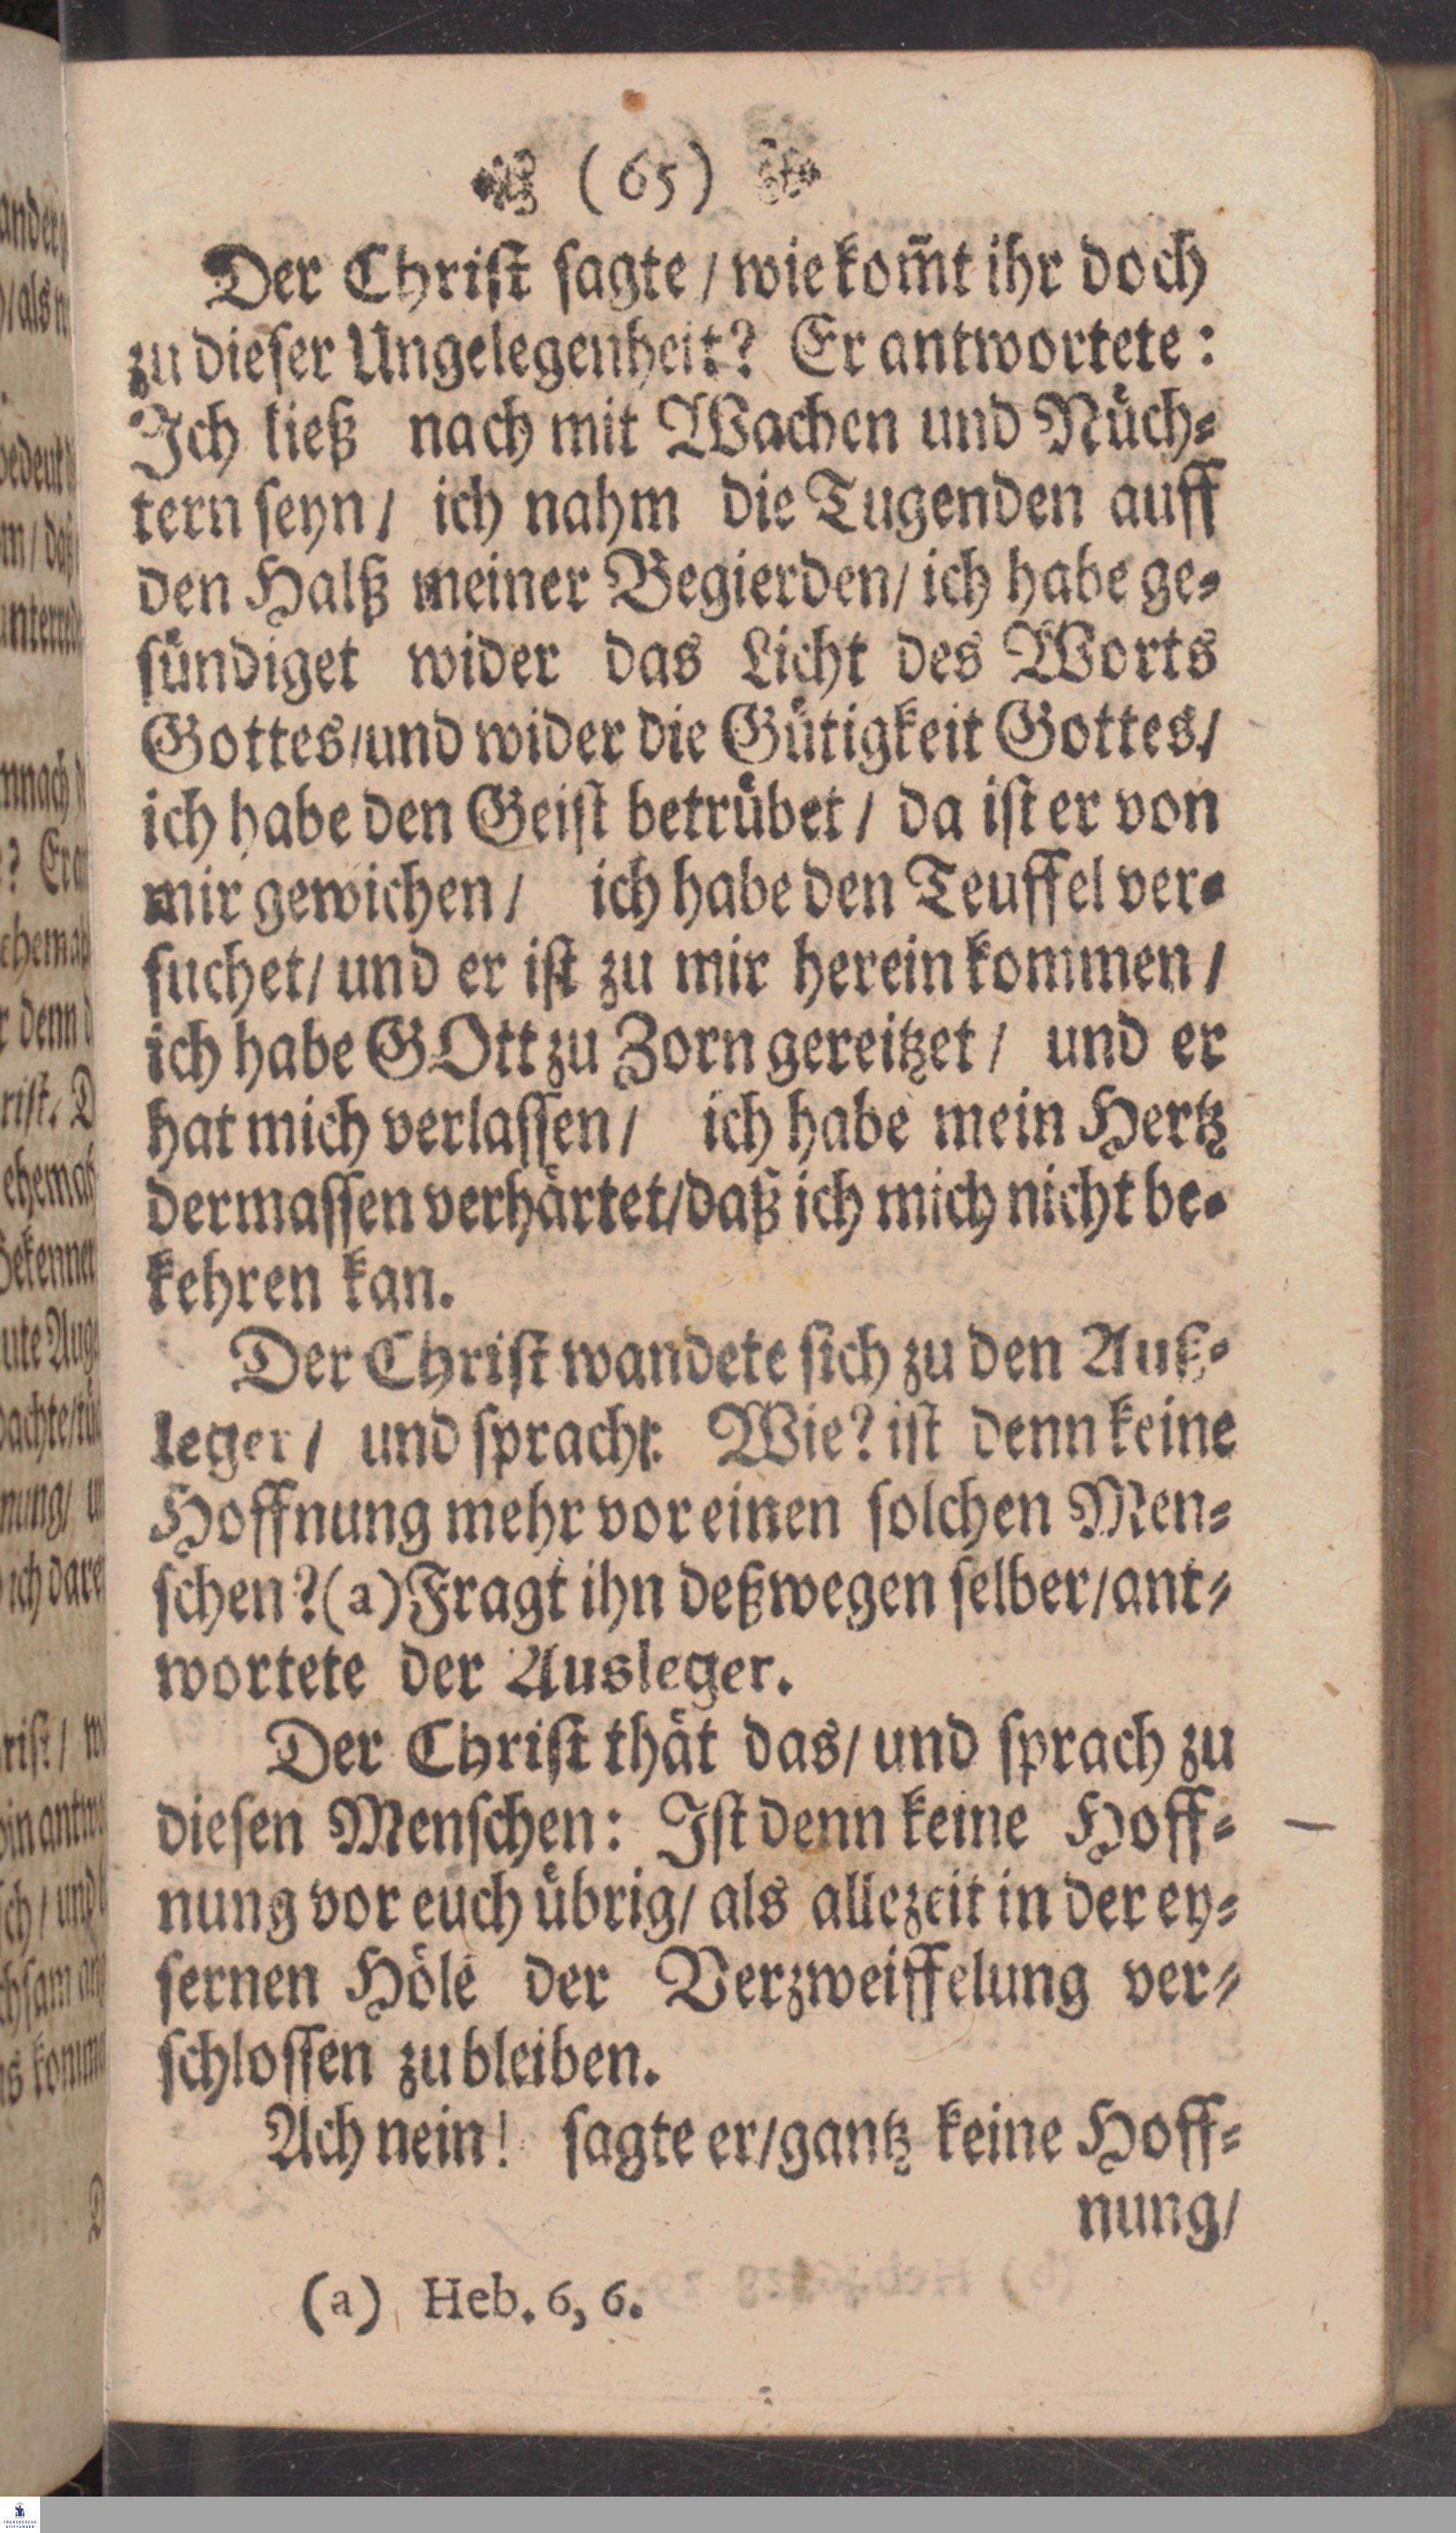 (65)
Der Chriſt ſagte / wie kom̃t ihr doch
zu dieſer Ungelegenheit? Er antwortete:
Ich ließ nach mit Wachen und Nuͤch⸗
tern ſeyn / ich nahm die Tugenden auff
den Halß meiner Begierden / ich habe ge⸗
ſuͤndiget wider das Licht des Worts
Gottes / und wider die Guͤtigkeit Gottes /
ich habe den Geiſt betruͤbet / da iſt er von
mir gewichen / ich habe den Teuffel ver⸗
ſuchet / und er iſt zu mir herein kommen /
ich habe GOtt zu Zorn gereitzet / und er
hat mich verlaſſen / ich habe mein Hertz
dermaſſen verhaͤrtet / daß ich mich nicht be⸗
kehren kan.
Der Chriſt wandete ſich zu den Auß⸗
leger / und ſprach: Wie? iſt denn keine
Hoffnung mehr vor einen ſolchen Men⸗
ſchen? (a) Fragt ihn deßwegen ſelber / ant⸗
wortete der Ausleger.
Der Chriſt thaͤt das / und ſprach zu
dieſen Menſchen: Iſt denn keine Hoff⸗
nung vor euch uͤbrig / als allezeit in der ey⸗
ſernen Hoͤle der Verzweiffelung ver⸗
ſchloſſen zu bleiben.
Ach nein! ſagte er / gantz keine Hoff⸗
nung /
(a) Heb. 6, 6.